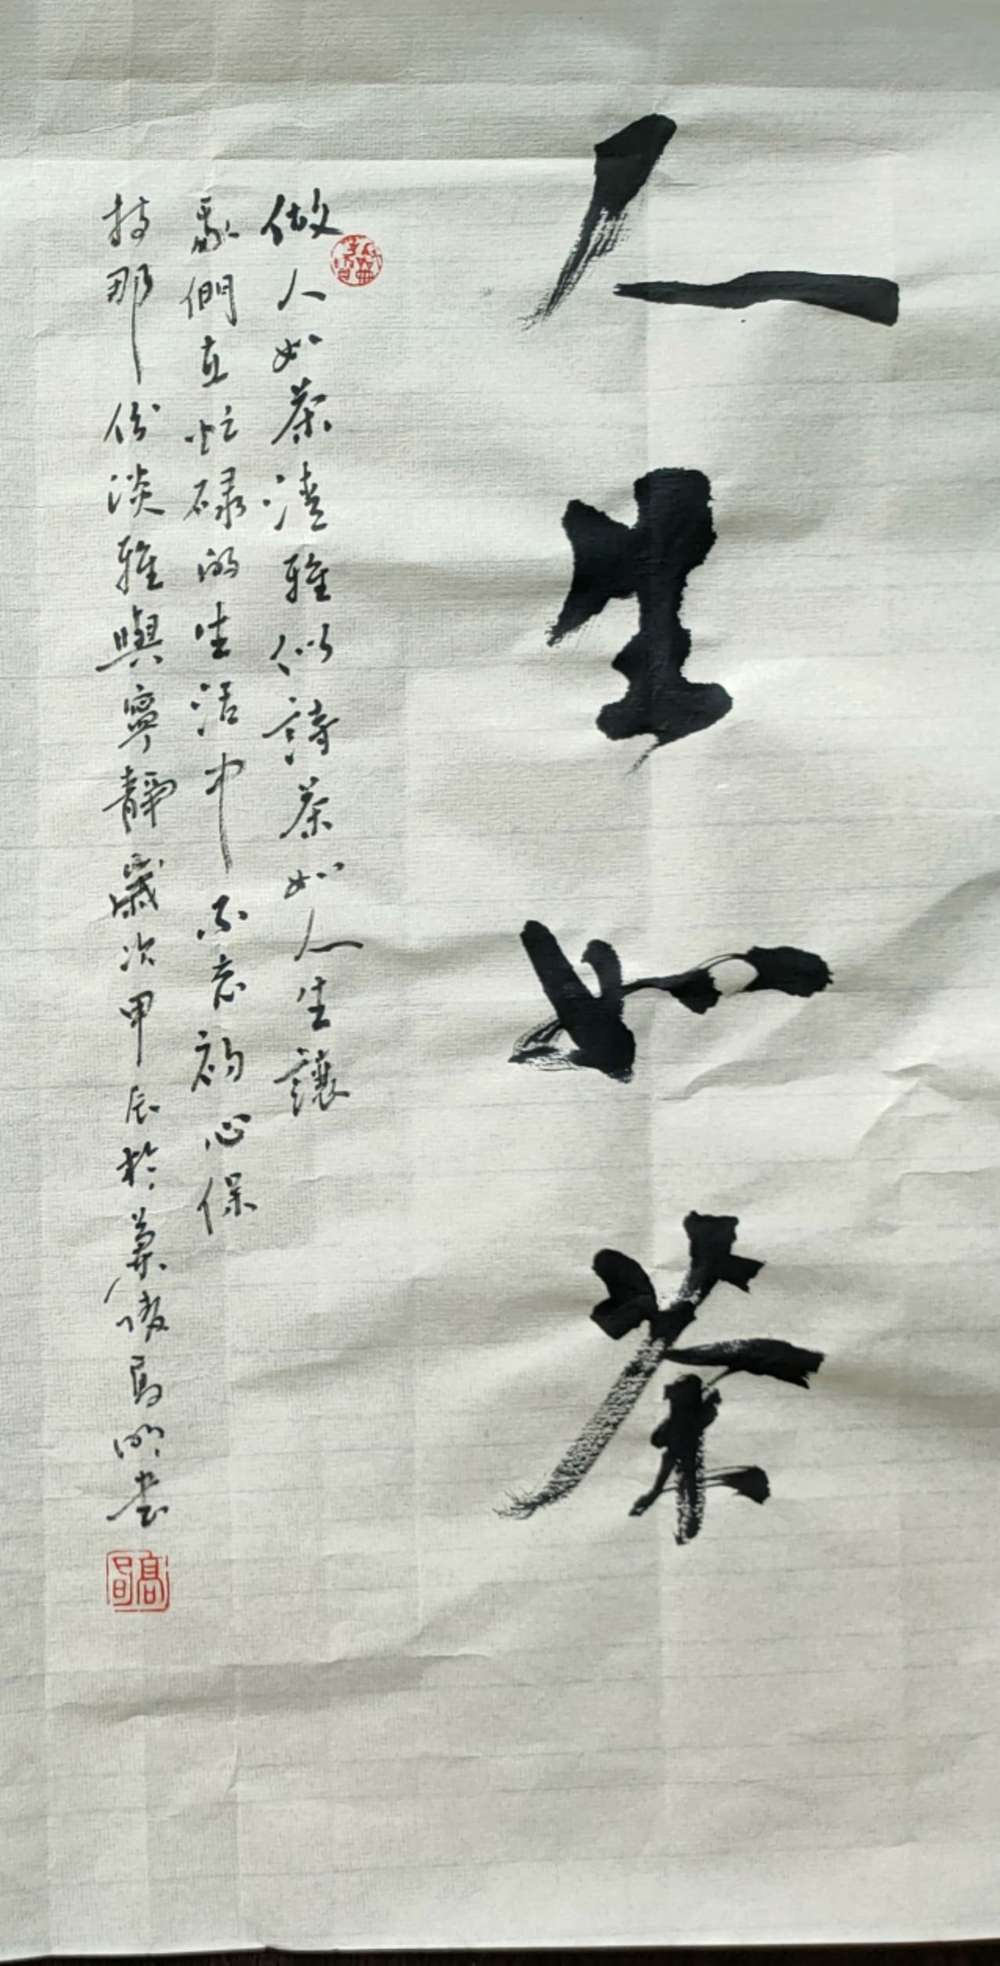 人生如茶
做人如茶清雅似詩茶如人生讓
我們在忙碌的生活中不忘初心保
持那份淡雅與寧靜歲次甲辰於蘭陵馬明書